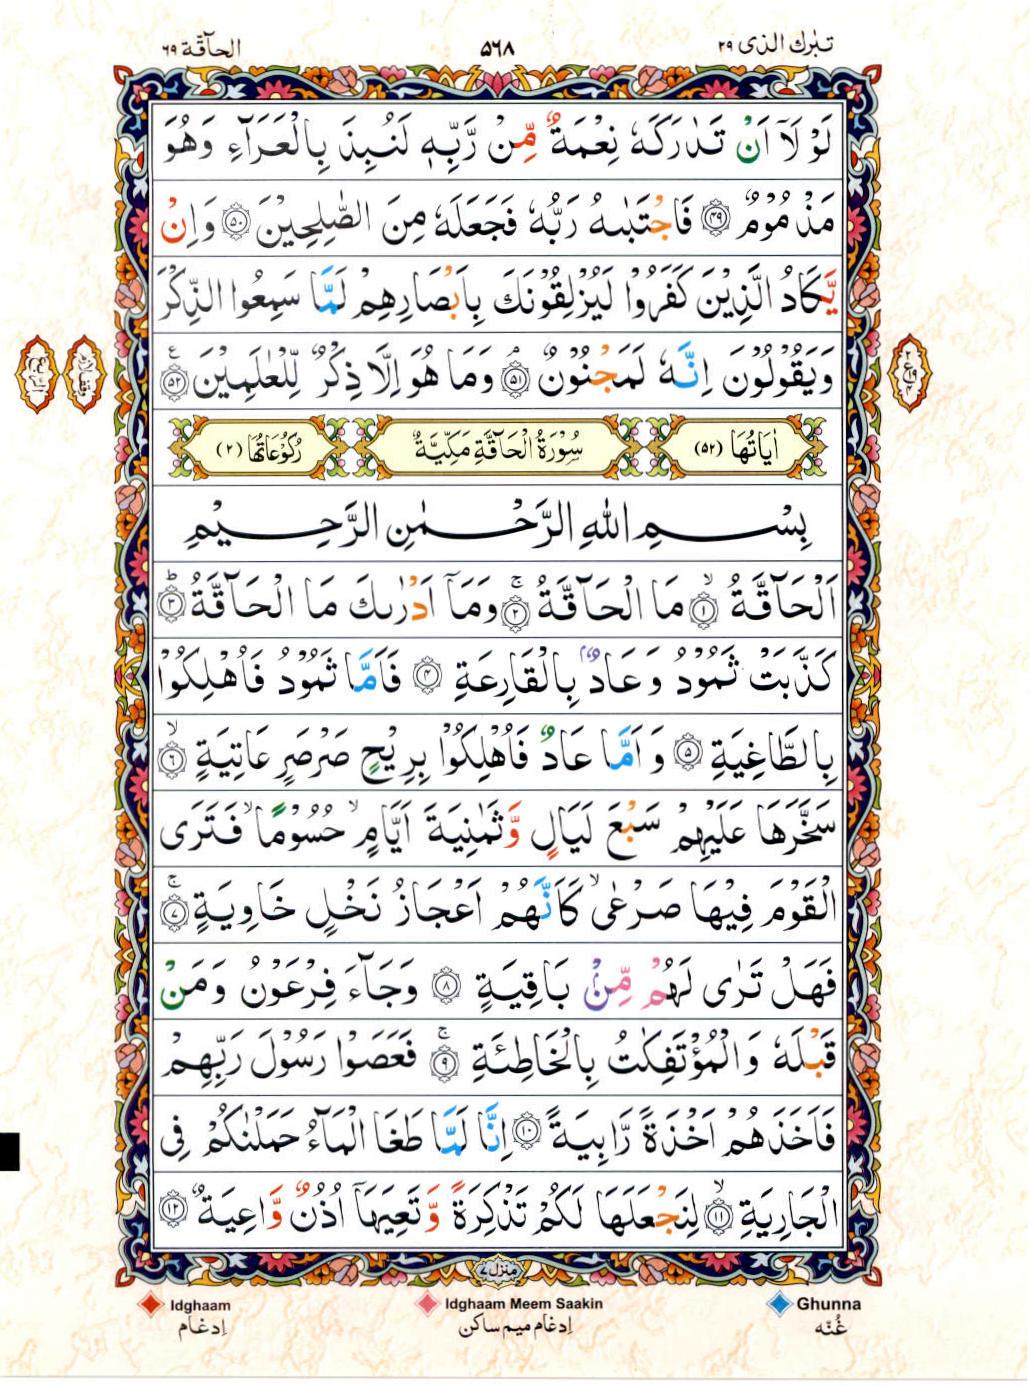 تبٰرك الذى ٢٩ ٥٦٨ الحآقّة ٦٩
لَوْ لَاۤ اَنْ تَدٰرَكَهٗ نِعْمَةٌ مِّنْ رَّبِّهٖ لَنُبِذَ بِالْعَرَآءِ وَهُوَ
مَذْمُوْمٌ ﴿۴۹﴾ فَاجْتَبٰىهُ رَبُّهٗ فَجَعَلَهٗ مِنَ الصّٰلِحِيْنَ ﴿۵۰﴾ وَاِنْ
يَّكَادُ الَّذِيْنَ كَفَرُوْا لَيُزْلِقُوْنَكَ بِاَبْصَارِهِمْ لَمَّا سَمِعُوا الذِّكْرَ
وَيَقُوْلُوْنَ اِنَّهٗ لَمَجْنُوْنٌ ۘ﴿۵۱﴾ وَمَا هُوَ اِلَّا ذِكْرٌ لِّلْعٰلَمِيْنَ ﴿۵۲﴾ ع
اٰيَاتُهَا (۵۲) سُوْرَةُ الْحَآقَّةِ مَكِّيَّةٌ رُكُوْعَاتُهَا (۲)
بِسْمِ اللهِ الرَّحْمٰنِ الرَّحِيْمِ
اَلْحَآقَّةُ ۙ﴿۱﴾ مَا الْحَآقَّةُ ۚ﴿۲﴾ وَمَاۤ اَدْرٰىكَ مَا الْحَآقَّةُ ؕ﴿۳﴾
كَذَّبَتْ ثَمُوْدُ وَعَادٌۢ بِالْقَارِعَةِ ﴿۴﴾ فَاَمَّا ثَمُوْدُ فَاُهْلِكُوْا
بِالطَّاغِيَةِ ﴿۵﴾ وَاَمَّا عَادٌ فَاُهْلِكُوْا بِرِيْحٍ صَرْصَرٍ عَاتِيَةٍ ۙ﴿۶﴾
سَخَّرَهَا عَلَيْهِمْ سَبْعَ لَيَالٍ وَّثَمٰنِيَةَ اَيَّامٍ ۙ حُسُوْمًا ۙ فَتَرَى
الْقَوْمَ فِيْهَا صَرْعٰى ۙ كَاَنَّهُمْ اَعْجَازُ نَخْلٍ خَاوِيَةٍ ۚ﴿۷﴾
فَهَلْ تَرٰى لَهُمْ مِّنْۢ بَاقِيَةٍ ﴿۸﴾ وَجَآءَ فِرْعَوْنُ وَمَنْ
قَبْلَهٗ وَالْمُؤْتَفِكٰتُ بِالْخَاطِئَةِ ۚ﴿۹﴾ فَعَصَوْا رَسُوْلَ رَبِّهِمْ
فَاَخَذَهُمْ اَخْذَةً رَّابِيَةً ﴿۱۰﴾ اِنَّا لَمَّا طَغَا الْمَآءُ حَمَلْنٰكُمْ فِى
الْجَارِيَةِ ۙ﴿۱۱﴾ لِنَجْعَلَهَا لَكُمْ تَذْكِرَةً وَّتَعِيَهَاۤ اُذُنٌ وَّاعِيَةٌ ﴿۱۲﴾
منزل ۷
Idghaam Idghaam Meem Saakin Ghunna
اِدغام اِدغام ميم ساكن غُنّه